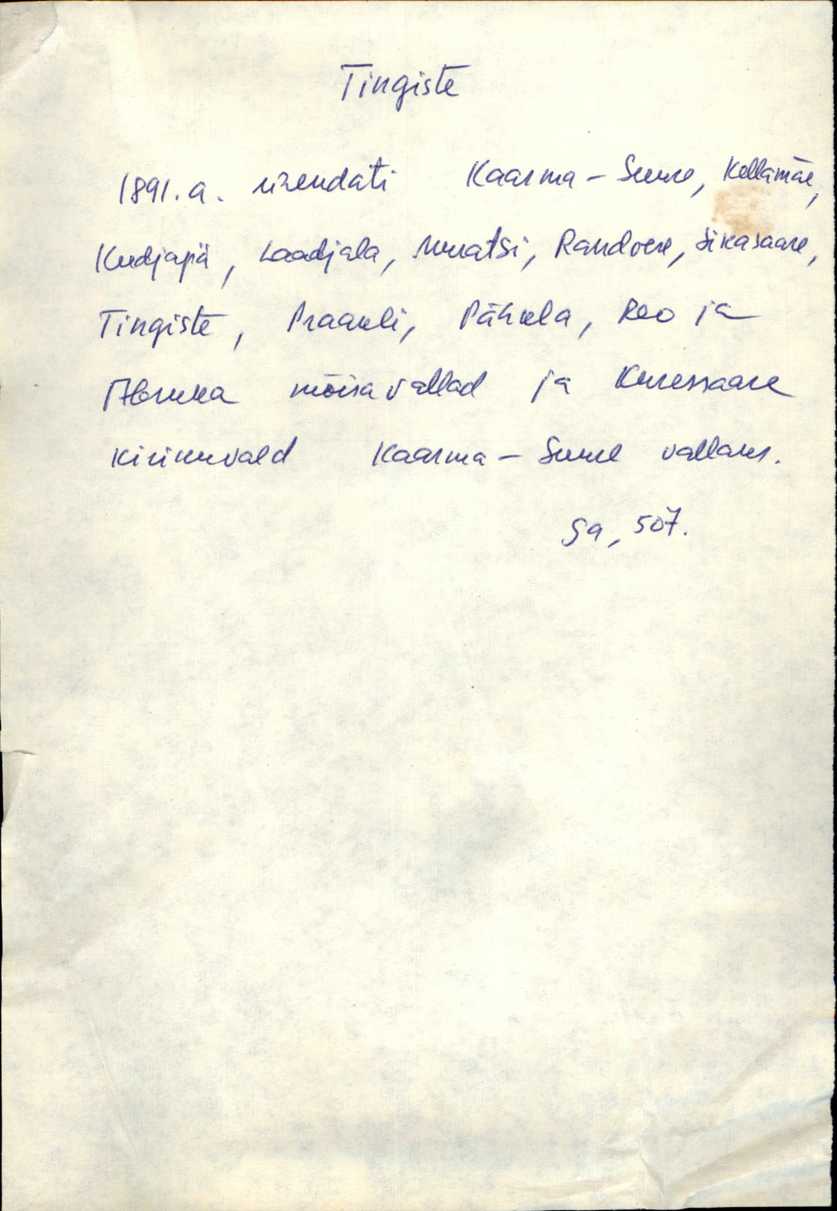 Tingiste
1891.a. ühendati Kaarma-Suure, Kellamäe,
Kudjapä, Laadjala, Muratsi, Randvere, Sikasaare,
Tingiste, Praakli, Pähkla, Reo ja
Abruka mõisavallad ja Kuressaare
kirikuvald Kaarma-Suure vallaks.
Sa, 507.